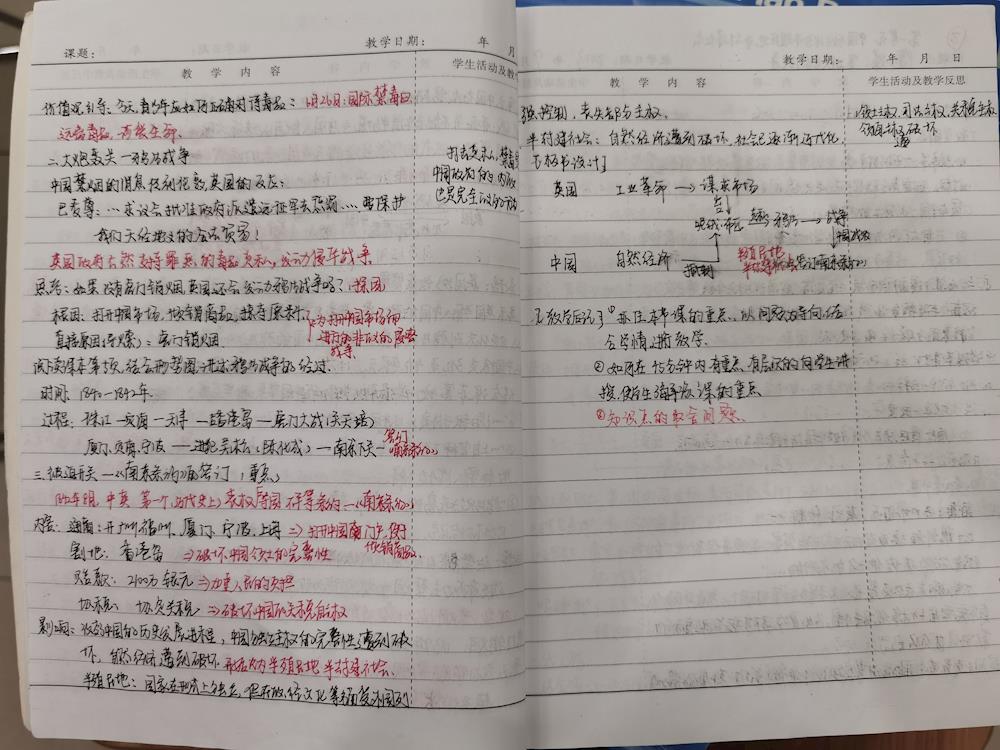 课题：
教学日期： 年 月
教 学 内 容
学生活动及教
价值观引导：今天青少年应如何正确对待毒品？6月26日：国际禁毒日
远离毒品，珍爱生命.
二、大炮轰关——鸦片战争
中国禁烟的消息传到伦敦，英国的反应：
巴麦尊：…求议会批准政府派遣远征军去惩罚…要保护
我们天经地义的合法贸易！
英国政府公然支持罪恶的毒品贸易，发动侵华战争
思考：如果没有虎门销烟，英国还会发动鸦片战争吗？（根因
根因：打开中国市场，倾销商品，掠夺原料
为打开中国市场而
进行的非正义的
战争
直接原因（导火索）：虎门销烟
阅读课本第3页，结合形势图讲述鸦片战争的经过.
时间：1840—1842年.
过程：珠江—定海—天津—虎门大战（关天培）
厦门、定海、宁波——进犯吴淞（陈化成）—南京下关—
签订
《南京条约》
三、被迫开关—《南京条约》签订（重点）
1842年8月，中英 第一个（近代史上）丧权辱国不平等条约—《南京条约》
内容：通商：开广州、福州、厦门、宁波、上海⇒打开中国门户，便于
倾销商品
割地：香港岛 ⇒破坏中国领土的完整性
赔款：2100万银元⇒加重人民的负担
协税：协定关税 ⇒破坏中国的关税自主权
影响：改变中国的历史发展进程，中国独立主权的完整性遭到破
坏，自然经济遭到破坏 开始沦为半殖民地半封建社会.
半殖民地：国家在形式上独立，但在政、经、文化等方面受外国列
打击贸易，禁毒
中国政府的内政
教学日期： 年 月 日
教 学 内 容
学生活动及教学反思
强控制，丧失部分主权.
半封建社会：自然经济遭到破坏，社会已逐渐近代化
领土主权，司法主权，关税主权
领海 遭破坏
【板书设计】
英国 工业革命 → 谋求市场
鸦片 → 战争
中国 自然经济
抵制
半殖民地
《南京条约》
【教学后记】①抓住本节课的重点，以问题为导向，结
合学情上进行教学.
②如何在45分钟内有重点，有层次的向学生讲
授，使学生清晰该课的重点
③知识点的取舍问题.